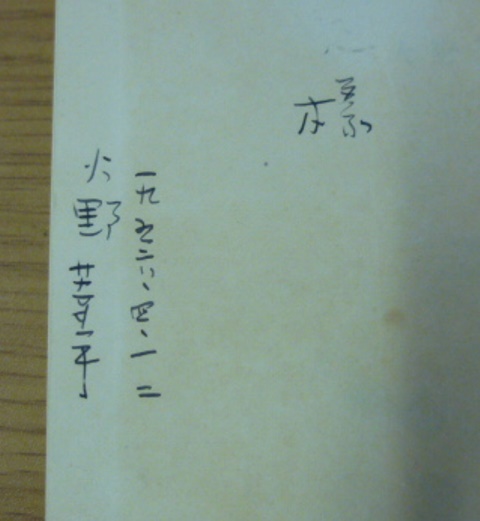 様
一九五六、四、一二
火野葦平